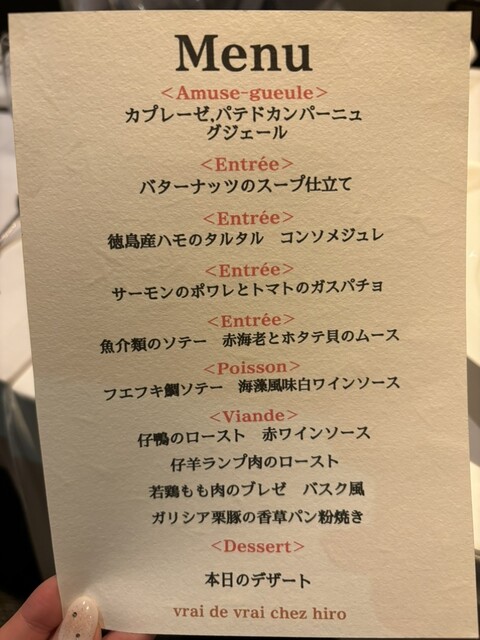 Menu
<Amuse-gueule>
カプレーゼ,パテドカンパーニュ
グジェール
<Entrée>
バターナッツのスープ仕立て
<Entrée>
徳島産ハモのタルタル　コンソメジュレ
<Entrée>
サーモンのポワレとトマトのガスパチョ
<Entrée>
魚介類のソテー　赤海老とホタテ貝のムース
<Poisson>
フエフキ鯛ソテー　海藻風味白ワインソース
<Viande>
仔鴨のロースト　赤ワインソース
仔羊ランプ肉のロースト
若鶏もも肉のブレゼ　バスク風
ガリシア栗豚の香草パン粉焼き
<Dessert>
本日のデザート
vrai de vrai chez hiro